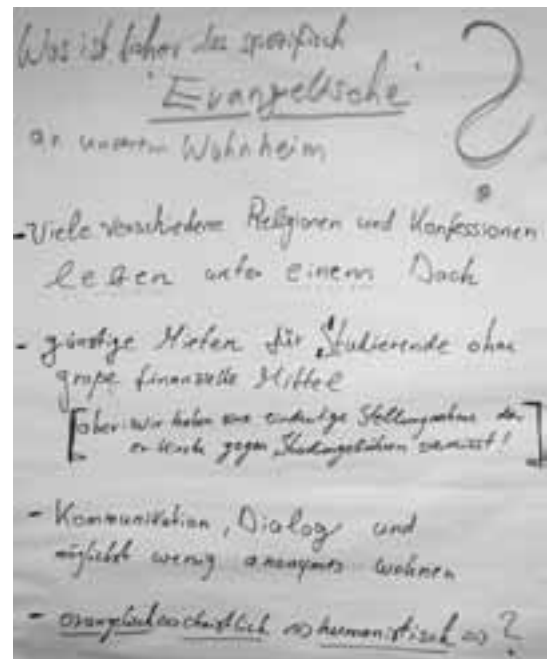 Was ist bisher das spezifisch
"Evangelische" ?
an unserem Wohnheim
- Viele verschiedene Religionen und Konfessionen
leben unter einem Dach
- günstige Mieten für Studierende ohne
große finanzielle Mittel
[aber: wir haben eine eindeutige Stellungnahme der
ev Kirche gegen Studiengebühren vermisst!]
- Kommunikation, Dialog und
möglichst wenig anonymes wohnen
- evangelisch ⇔ christlich ⇔ humanistisch ⇔ ?